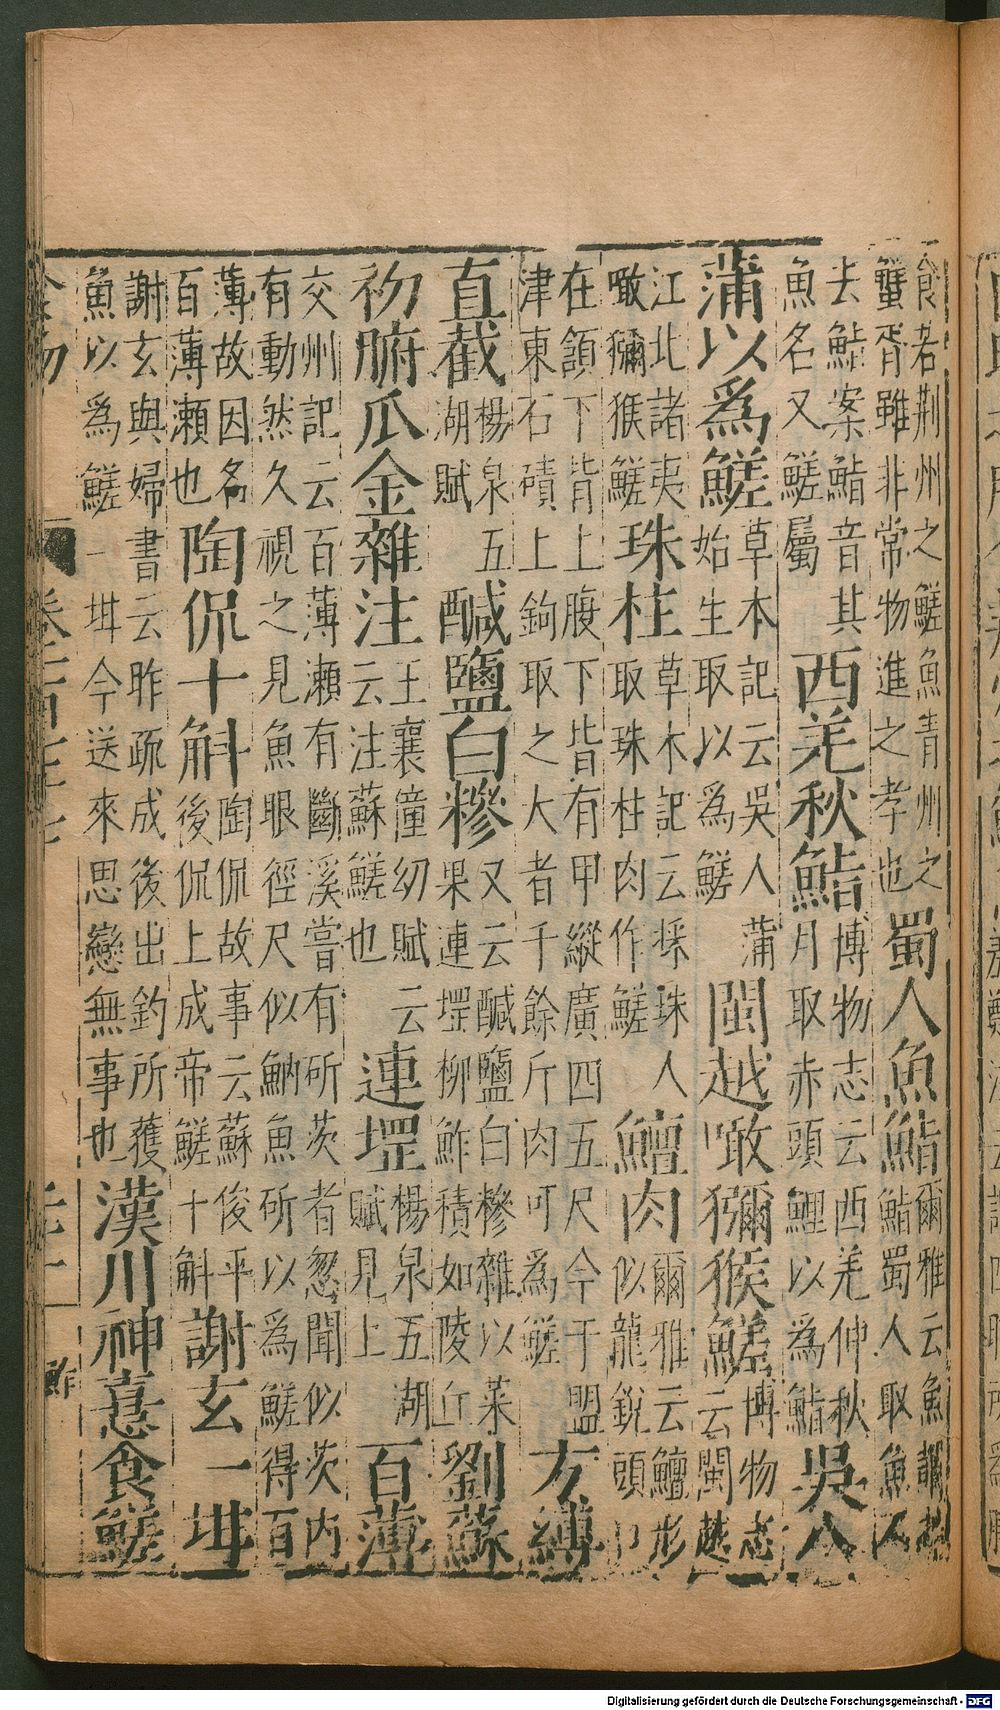 食若荆州之鱃魚青州之
蟹胥雖非常物進之孝也
蜀人魚鮨
爾雅云魚謂
鮨蜀人取魚不
去鮎案鮨音其
魚名又鱃屬
西羌秋鮨
博物志云西羌仲秋
月取赤頭鯉以為鮨
吳人
蒲以為鱃
草本記云吳人蒲
始生取以為鱃
閩越噉獼猴鱃
博物志
云閩越
江北諸夷
噉獼猴鱃
珠柱
草木記云採珠人
取珠柱肉作鱃
鱣肉
爾雅云鱣形
似龍銳頭口
在頷下背上腹下皆有甲縱廣四五尺今于盟
津東石磧上鉤取之大者千餘斤肉可為鱃
方縛
直截
楊泉五
湖賦
鹹鹽白糝
又云鹹鹽白糝雜以菜
果連堽柳鮓積如陵丘
劉蘇
礿腑瓜金雜注
王襄僮幼賦云
云注蘇鱃也
連堽
楊泉五湖
賦見上
百薄
交州記云百薄瀨有斷溪嘗有所茨者忽聞似茨内
有動然久視之見魚眼徑尺似魶魚斫以為鱃得百
薄故因名
百薄瀨也
陶侃十斛
陶侃故事云蘇俊平
後侃上成帝鱃十斛
謝玄一坩
謝玄與婦書云昨疏成後出釣所獲
魚以為鱃一坩今送來思戀無事也
漢川神憙食鱃
鮓
Digitalisierung gefördert durch die Deutsche Forschungsgemeinschaft - DFG